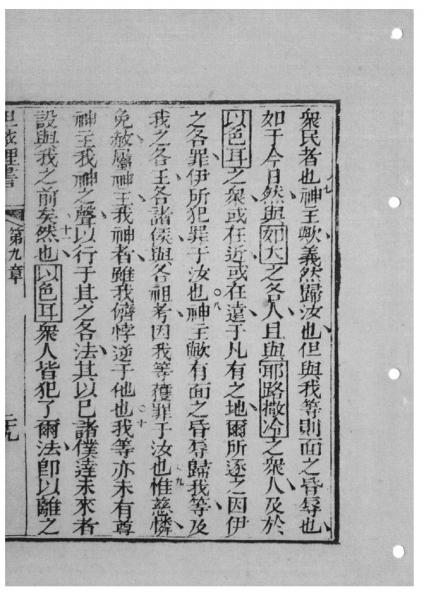 衆民者也神主歟義然歸汝也但與我等則面之昏辱也
如于今日然與如大之各人且與耶路撒冷之衆人及於
以色耳之衆或在近或在遠于凡有之地爾所逐之因伊
之各罪伊所犯罪于汝也神主歟有面之昏辱歸我等及
我之各王各諸侯與各祖考因我等獲罪于汝也惟慈憐
免赦屬神主我神者雖我儕悖逆于他也我等亦未有尊
神主我神之聲以行于其之各法其以已諸僕達未來者
設與我之前矣然也以色耳衆人皆犯了爾法卽以離之
第九章